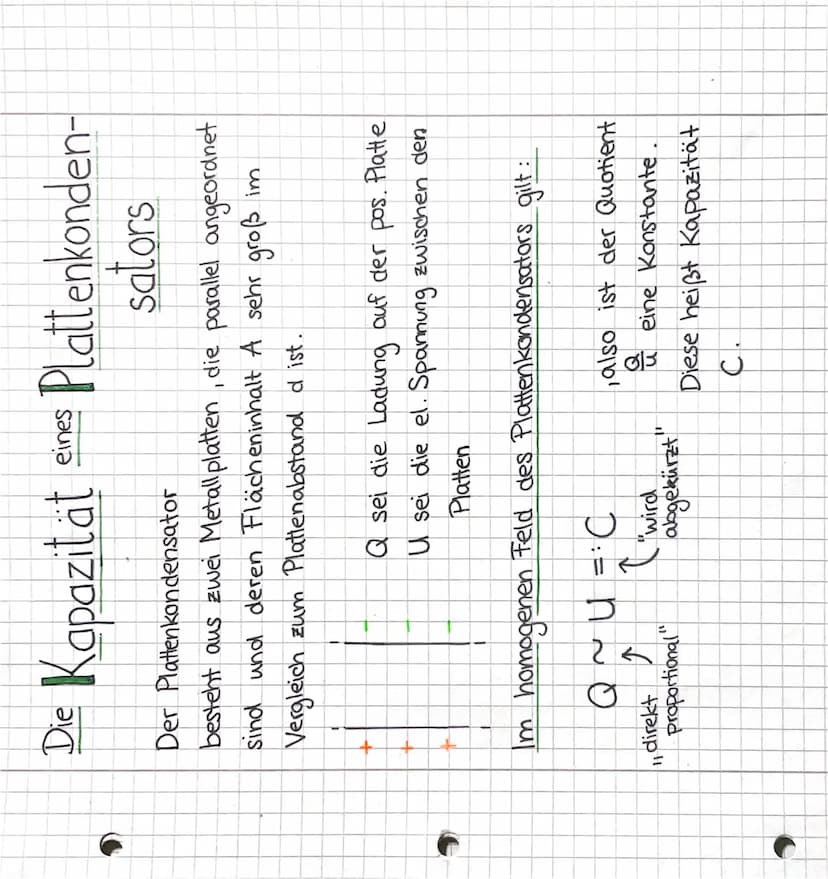 Die Kapazität eines Plattenkonden-
sators
Der Plattenkondensator
besteht aus zwei Metallplatten, die parallel angeordnet
sind und deren Flächeninhalt A sehr groß im
Vergleich zum Plattenabstand d ist.
+ + +
- - -
Q sei die Ladung auf der pos. Platte
U sei die el. Spannung zwischen den
Platten
Im homogenen Feld des Plattenkondensators gilt:
Q ~ U =: C
"direkt
proportional"
"wird
abgekürzt"
, also ist der Quotient
Q/U eine Konstante.
Diese heißt Kapazität
C.